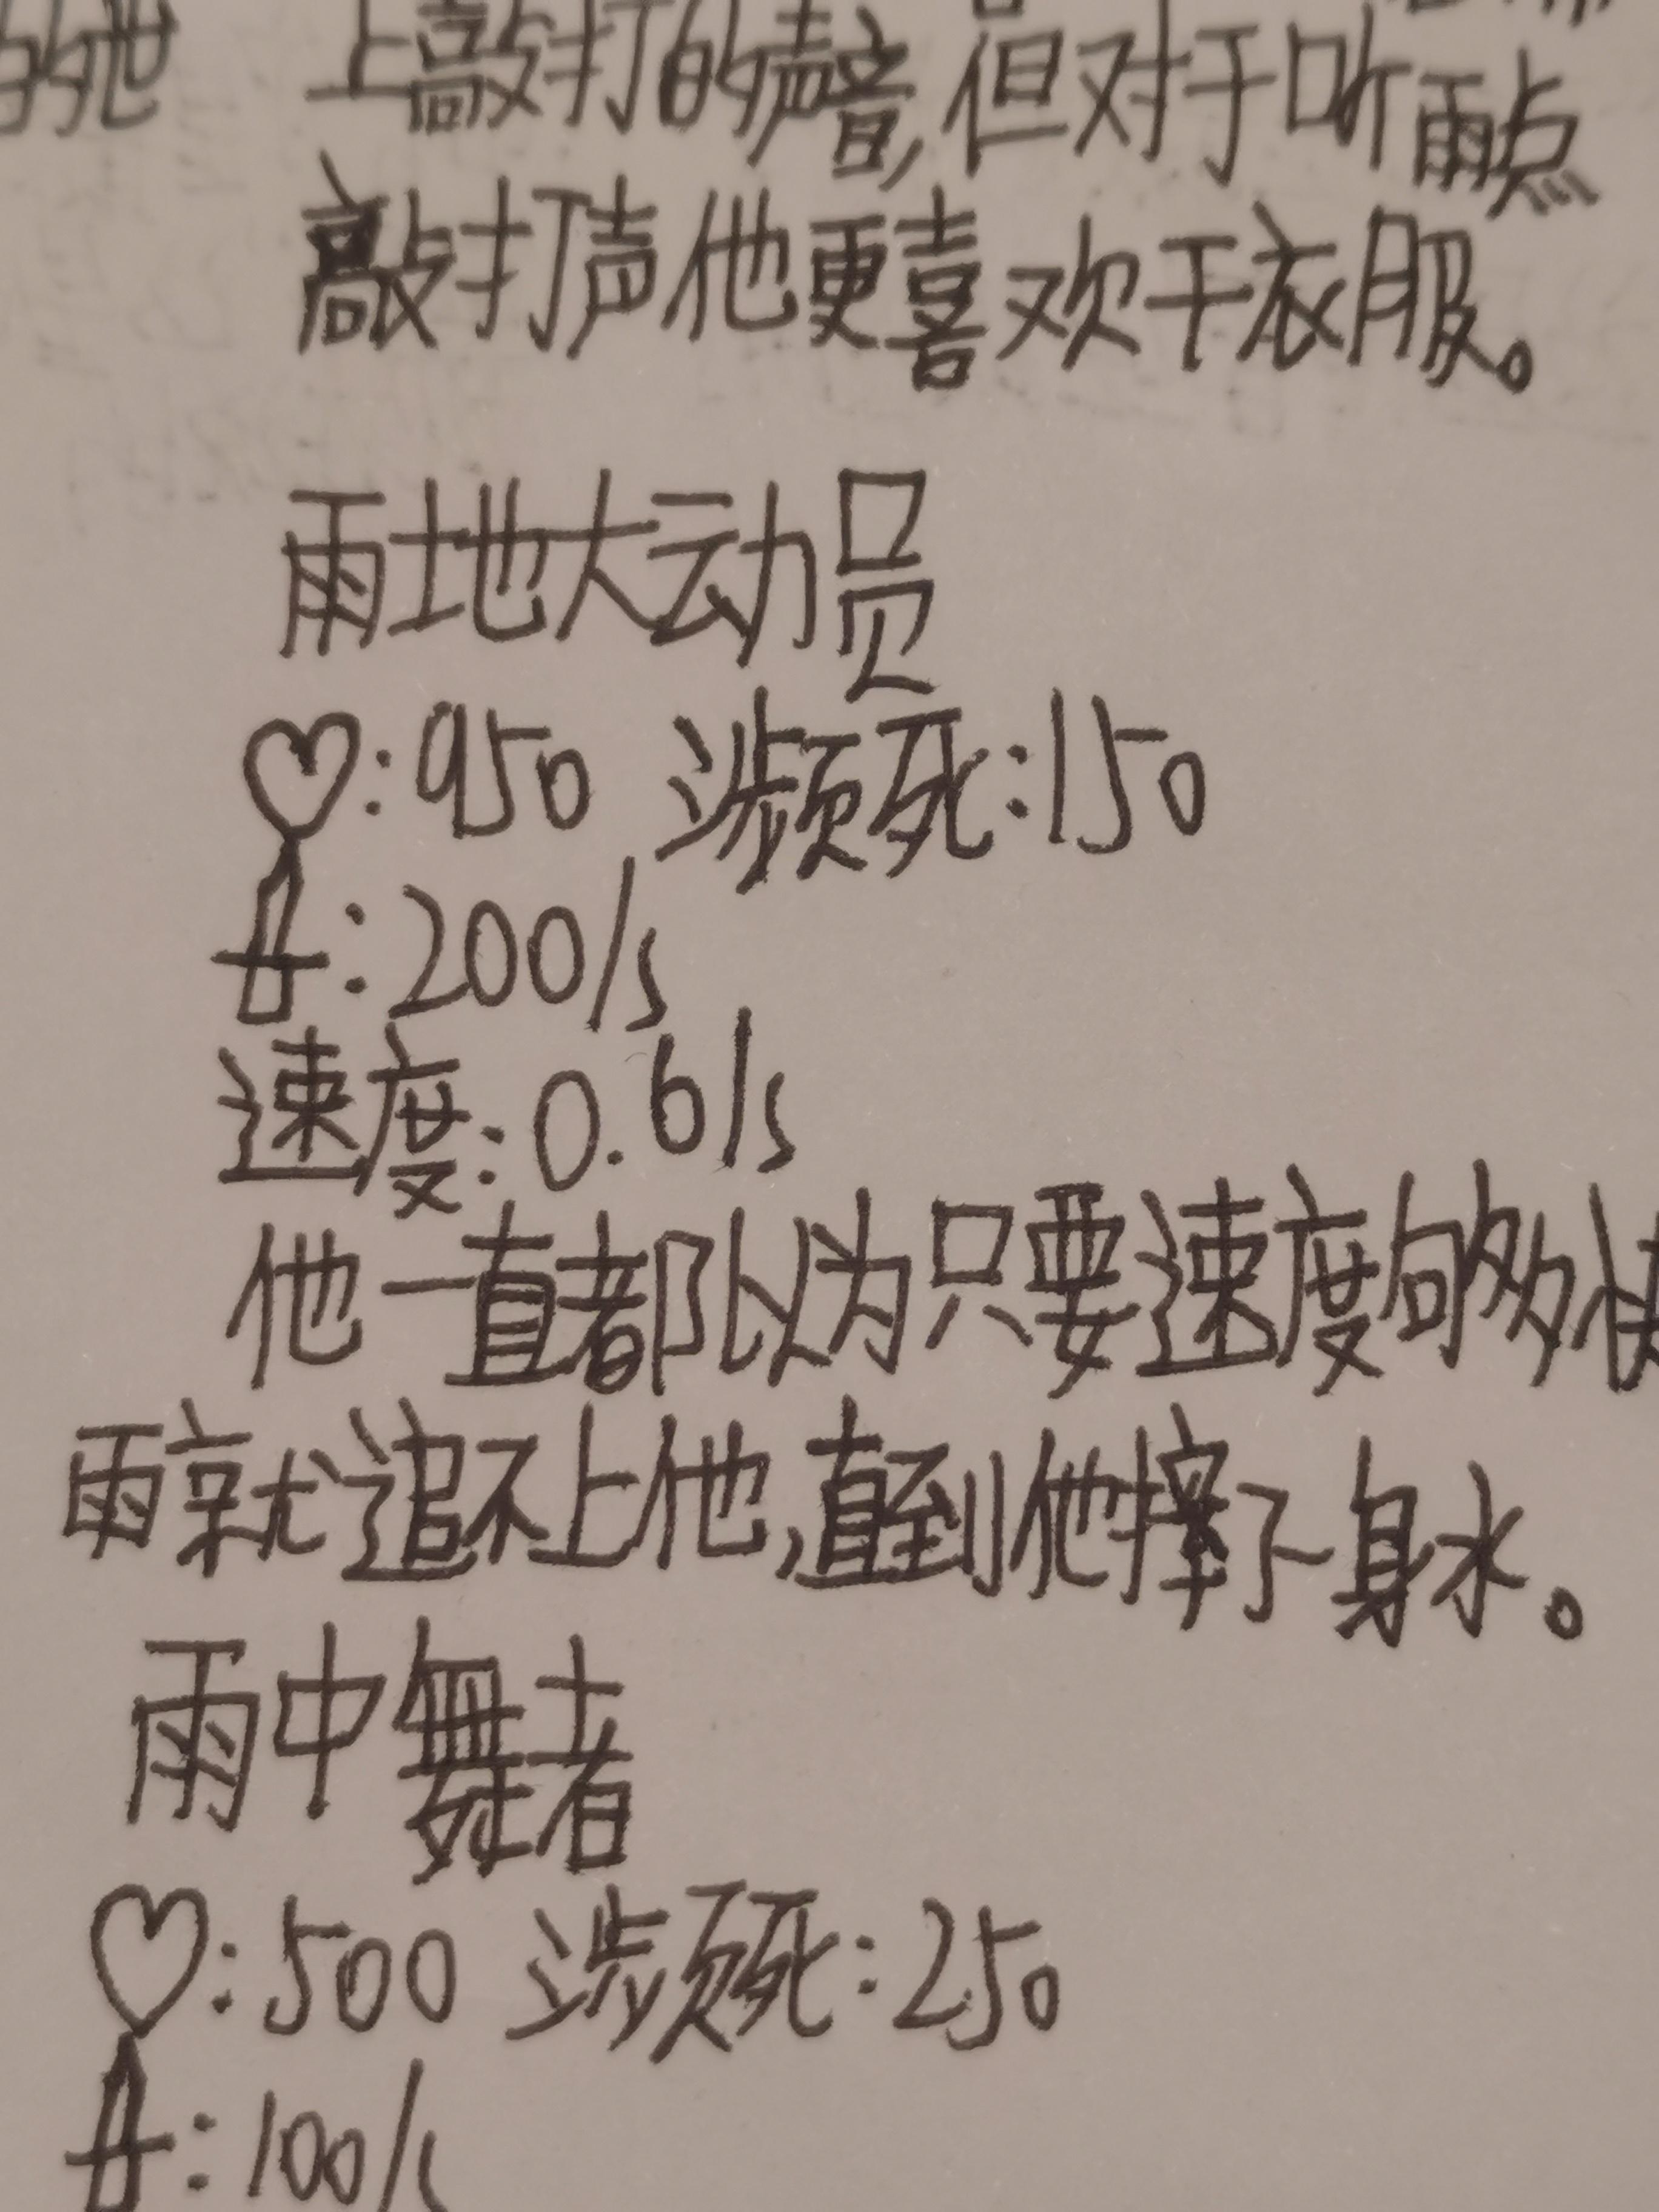 的地 上敲打的声音,但对于听雨点
敲打声他更喜欢干衣服。
雨地大动员
♡:950 濒死:150
:200/s
速度:0.6/s
他一直都以为只要速度够快
雨就追不上他,直到他摔了一身水。
雨中舞者
♡:500 濒死:250
:100/s